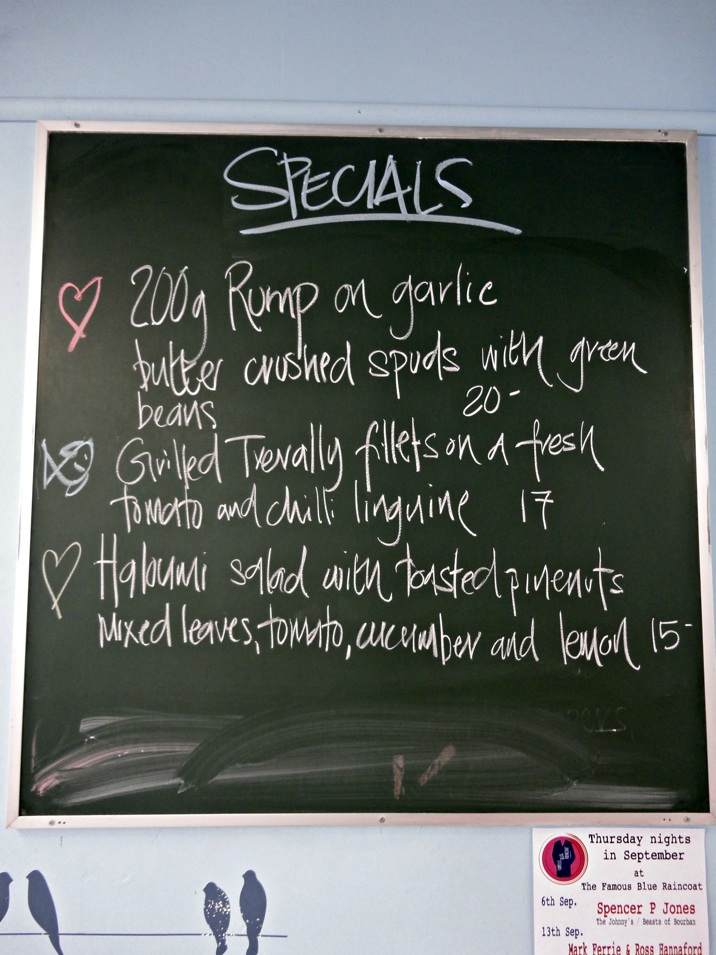 SPECIALS
200g Rump on garlic
butter crushed spuds with green
beans 20-
Grilled Trevally fillets on a fresh
tomato and chilli linguine 17
Haloumi salad with toasted pinenuts
mixed leaves, tomato, cucumber and lemon 15-
Thursday nights
in September
at
The Famous Blue Raincoat
6th Sep.
Spencer P Jones
The Johnny's / Beasts of Bourban
13th Sep.
Mark Ferrie & Ross Hannaford